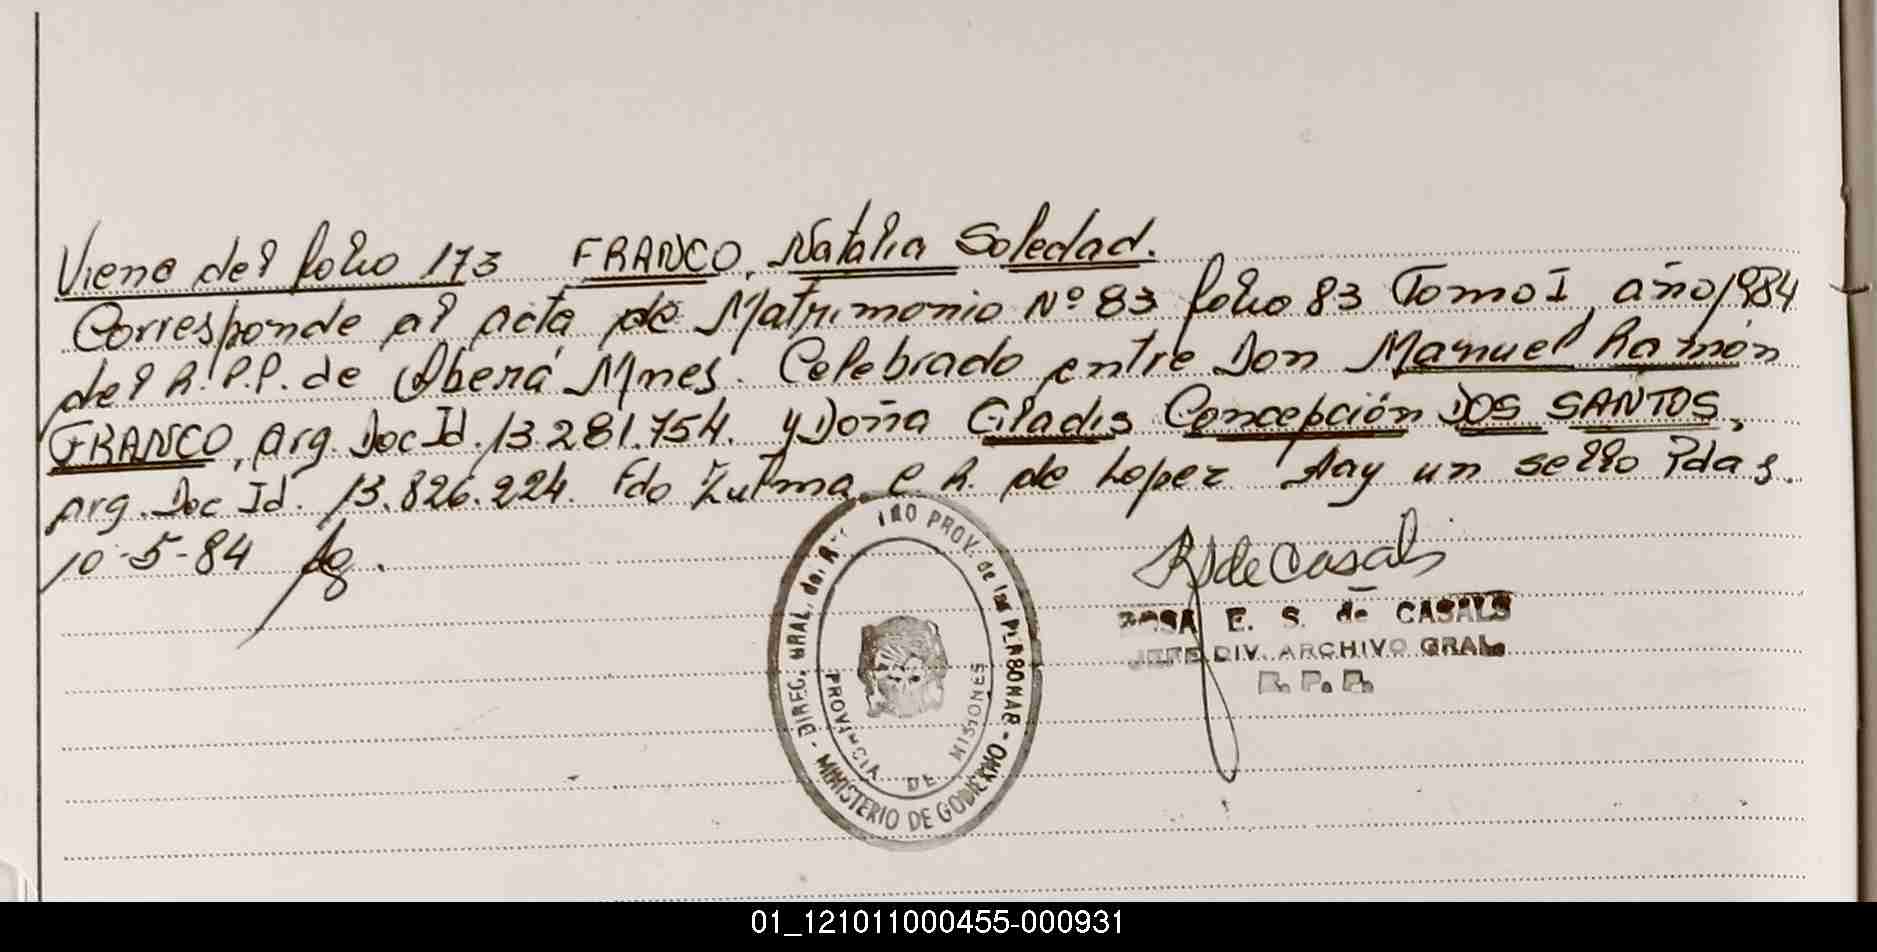 Viene del folio 173 FRANCO, Natalia Soledad.
Corresponde al acta de Matrimonio Nº 83 folio 83 Tomo I, año 1984
del R.P.P. de Oberá Mnes. Celebrado entre Don Manuel Ramón
FRANCO, Arg. Doc Id. 13.281.754. y Doña Gladis Concepción DOS SANTOS,
Arg. Doc Id. 13.826.224. Fdo Zulma e R. de Lopez Hay un sello Pdas.
10-5-84
R S de Casals
ROSA E. S. de CASALS
JEFE DIV. ARCHIVO GRAL.
R. P. P.
DIREC. GRAL. del PROV. de las PERSONAS - MINISTERIO DE GOBIERNO -
PROVINCIA DE MISIONES
01_121011000455-000931